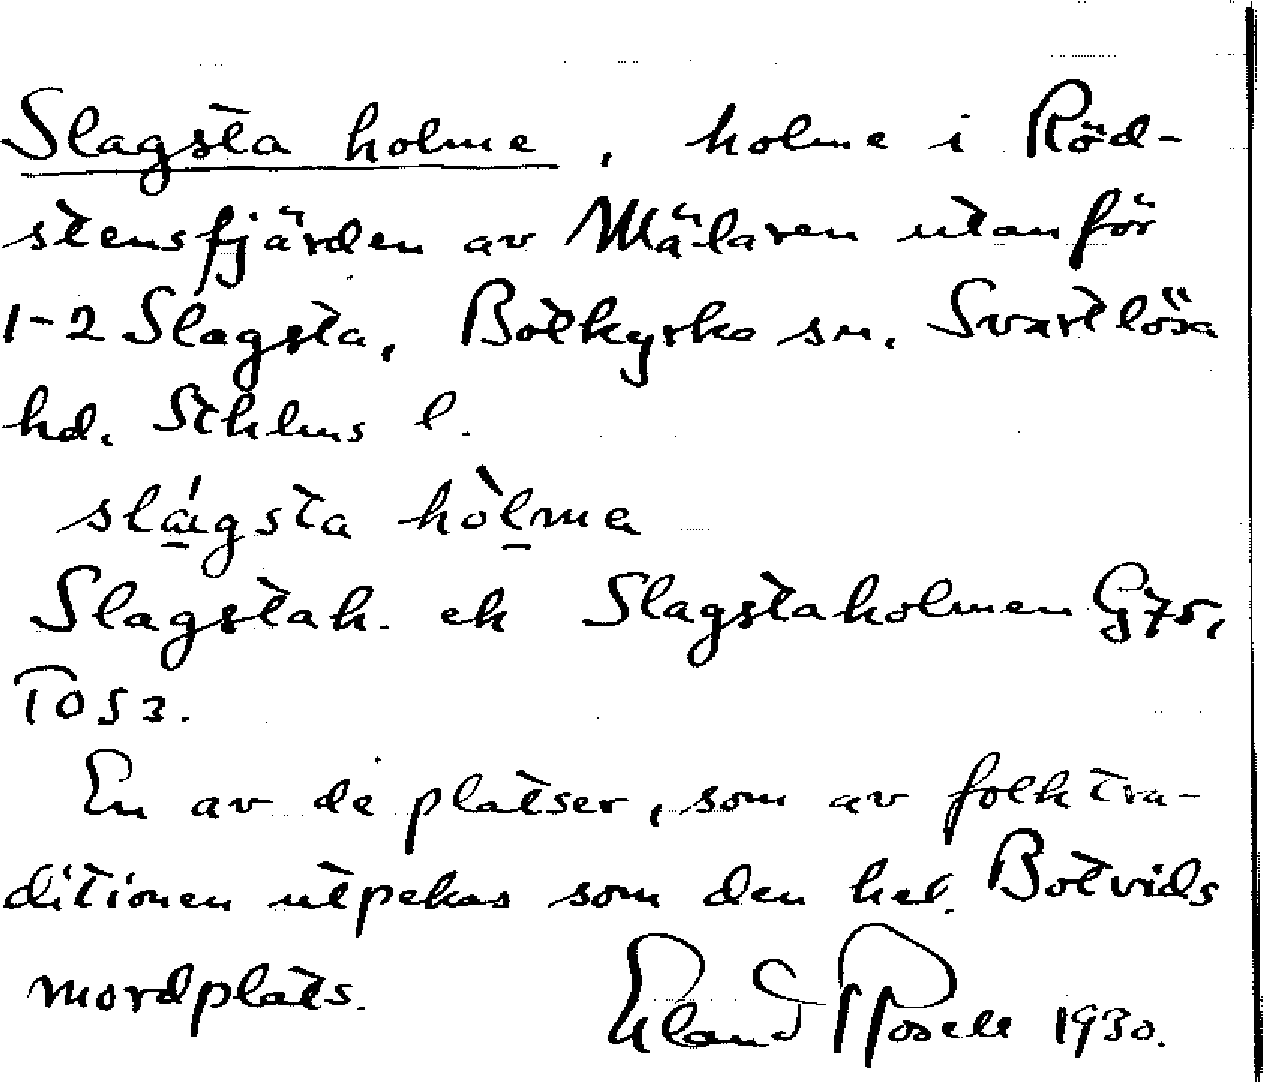 Slagsta holme, holme i Röd-
stensfjärden av Mälaren utanför
1-2 Slagsta, Botkyrka sn. Svartlösa
hd. Sthlms l.
slágsta hòlma
Slagstah. ek Slagstaholmen G75,
T053.
En av de platser, som av folktra-
ditionen utpekas som den hel. Botvids
mordplats.
Erland Rosell 1930.